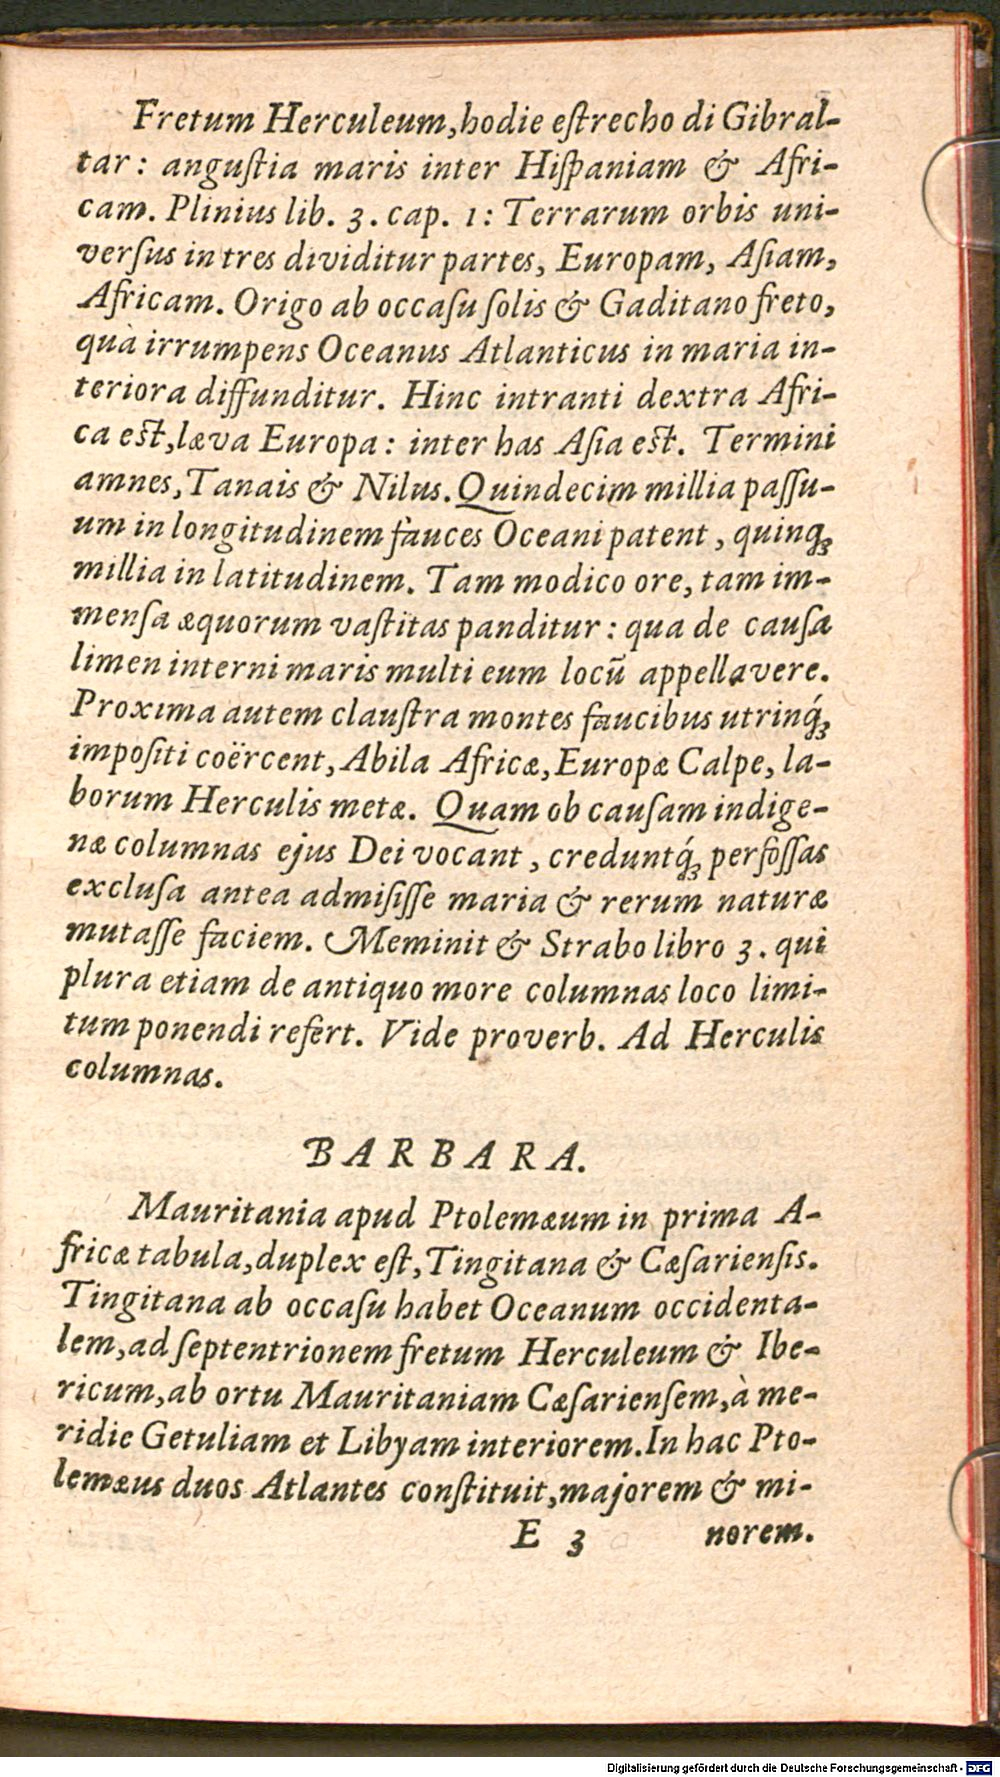 Fretum Herculeum, hodie eſtrecho di Gibral-
tar: anguſtia maris inter Hiſpaniam & Afri-
cam. Plinius lib. 3. cap. 1: Terrarum orbis uni-
verſus in tres dividitur partes, Europam, Aſiam,
Africam. Origo ab occaſu ſolis & Gaditano freto,
quà irrumpens Oceanus Atlanticus in maria in-
teriora diffunditur. Hinc intranti dextra Afri-
ca eſt, læva Europa: inter has Aſia eſt. Termini
amnes, Tanais & Nilus. Quindecim millia paſſu-
um in longitudinem fauces Oceani patent, quinq́;
millia in latitudinem. Tam modico ore, tam im-
menſa æquorum vaſtitas panditur: qua de cauſa
limen interni maris multi eum locũ appellavere.
Proxima autem clauſtra montes faucibus utrinq́;
impoſiti coërcent, Abila Africæ, Europæ Calpe, la-
borum Herculis metæ. Quam ob cauſam indige-
næ columnas ejus Dei vocant, creduntq́; perfoſſas
excluſa antea admiſiſſe maria & rerum naturæ
mutaſſe faciem. Meminit & Strabo libro 3. qui
plura etiam de antiquo more columnas loco limi-
tum ponendi refert. Vide proverb. Ad Herculis
columnas.
BARBARA.
Mauritania apud Ptolemæum in prima A-
fricæ tabula, duplex eſt, Tingitana & Cæſarienſis.
Tingitana ab occaſu habet Oceanum occidenta-
lem, ad ſeptentrionem fretum Herculeum & Ibe-
ricum, ab ortu Mauritaniam Cæſarienſem, à me-
ridie Getuliam et Libyam interiorem. In hac Pto-
lemæus duos Atlantes conſtituit, majorem & mi-
E 3 norem.
Digitalisierung gefördert durch die Deutsche Forschungsgemeinschaft - DFG